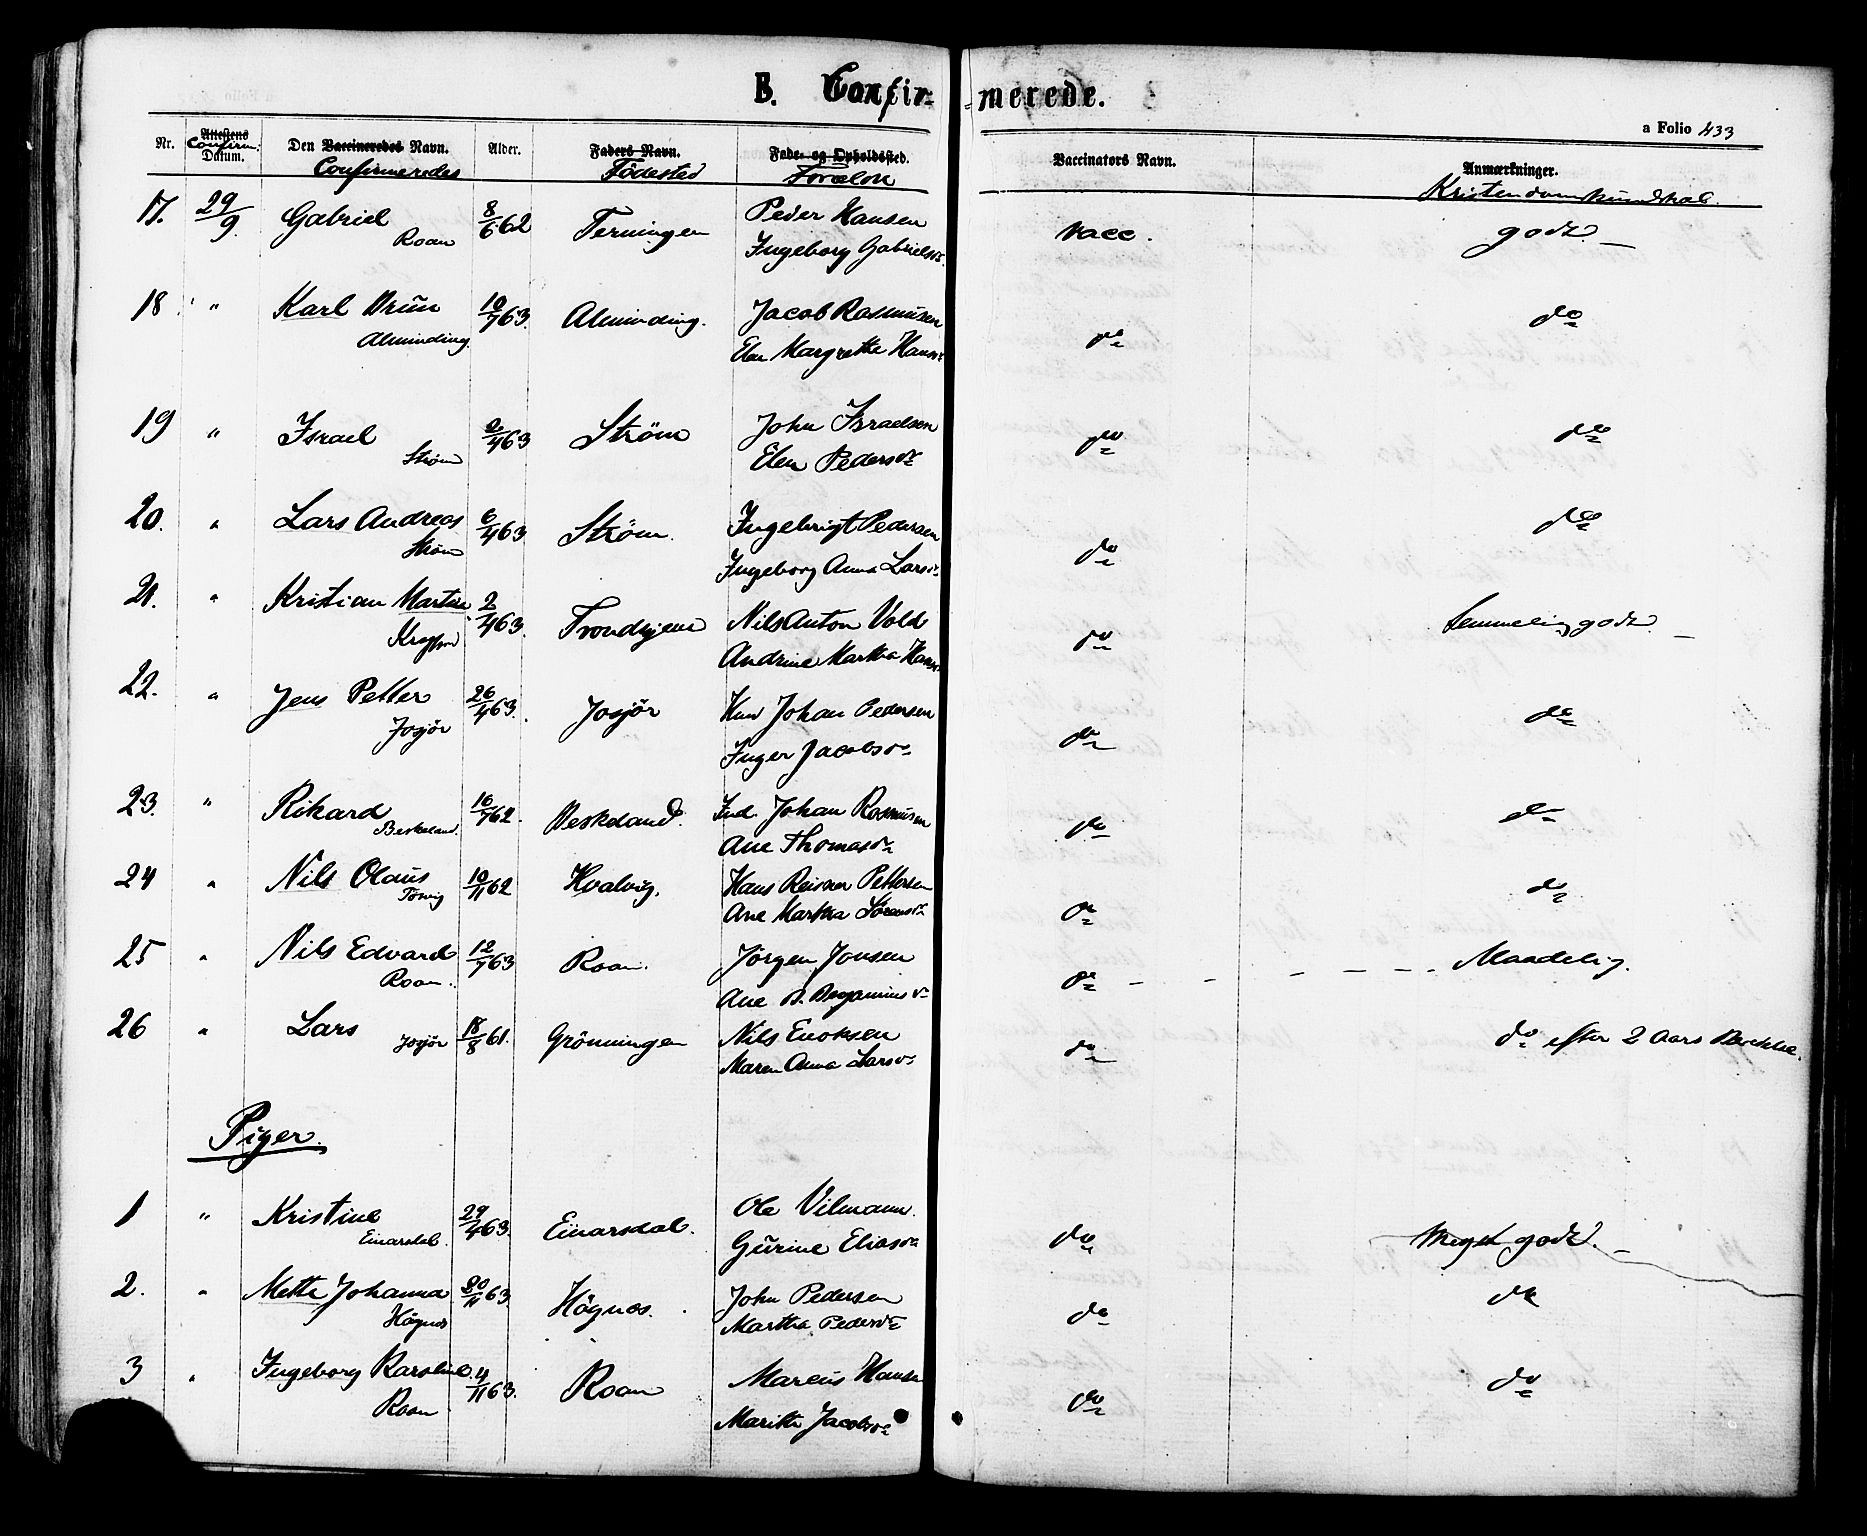 B. Confirmerede.
a Folio 433
Nr. Attestens Confirm. Datum. Den Vaccineredes Navn. Confirmeredes Alder. Faders Navn. Födested Føde- og Opholdssted. Forældre Vaccinators Navn. Anmærkninger. Kristendomskundskab.
17. 29/9 Gabriel 8/6 62 Terningen Peder Hansen vacc. godt.
Roan Ingeborg Gabrielsd.
18 " Karl Brun 10/7 63. Alminding. Jacob Rasmusen do do
Alminding. Elen Margrethe Hansd.
19 " Israel 2/4 63 Strøm John Israelsen do do
Strøm Elen Pedersd.
20. " Lars Andreas 6/4 63 Strøm. Ingebrigt Pedersen do do
Strøm Ingeborg Anna Larsd.
21. " Kristian Martin 2/4 63. Trondhjem Nils Anton Vold do temmelig godt.
Andrine Martha Hansd.
22. " Jens Petter 26/4 63. Josjør Johan Pedersen do do
Josjør Inger Jacobsd.
23. " Rikard 16/7 62. Beskeland. Ind. Johan Rasmusen do do
Beskeland. Ane Thomasd.
24 " Nils Olaus 10/11 62 Hvalvig. Hans Reisner Pettersen do do
Ane Martha Sörensd.
25 " Nils Edvard 12/7 63 Roan. Jörgen Jonsen do Maadelig.
Roan. Ane B. Benjaminsd.
26 " Lars 18/8 61. Grönningen Nils Enoksen do do efter 2 Aars
Josjør Maren Anna Larsd.
Piger.
1 " Kristine 29/4 63. Einarsdal. Ole Vilmann. do Meget godt.
Einarsdal. Gurine Eliasd.
2. " Mette Johanna 20/11 63. Högnes. John Pedersen do do
Högnes Martha Pedersd.
3 " Ingeborg Karoline 4/11 63. Roan Marcus Hansen do do
Roan Marithe Jacobsd.